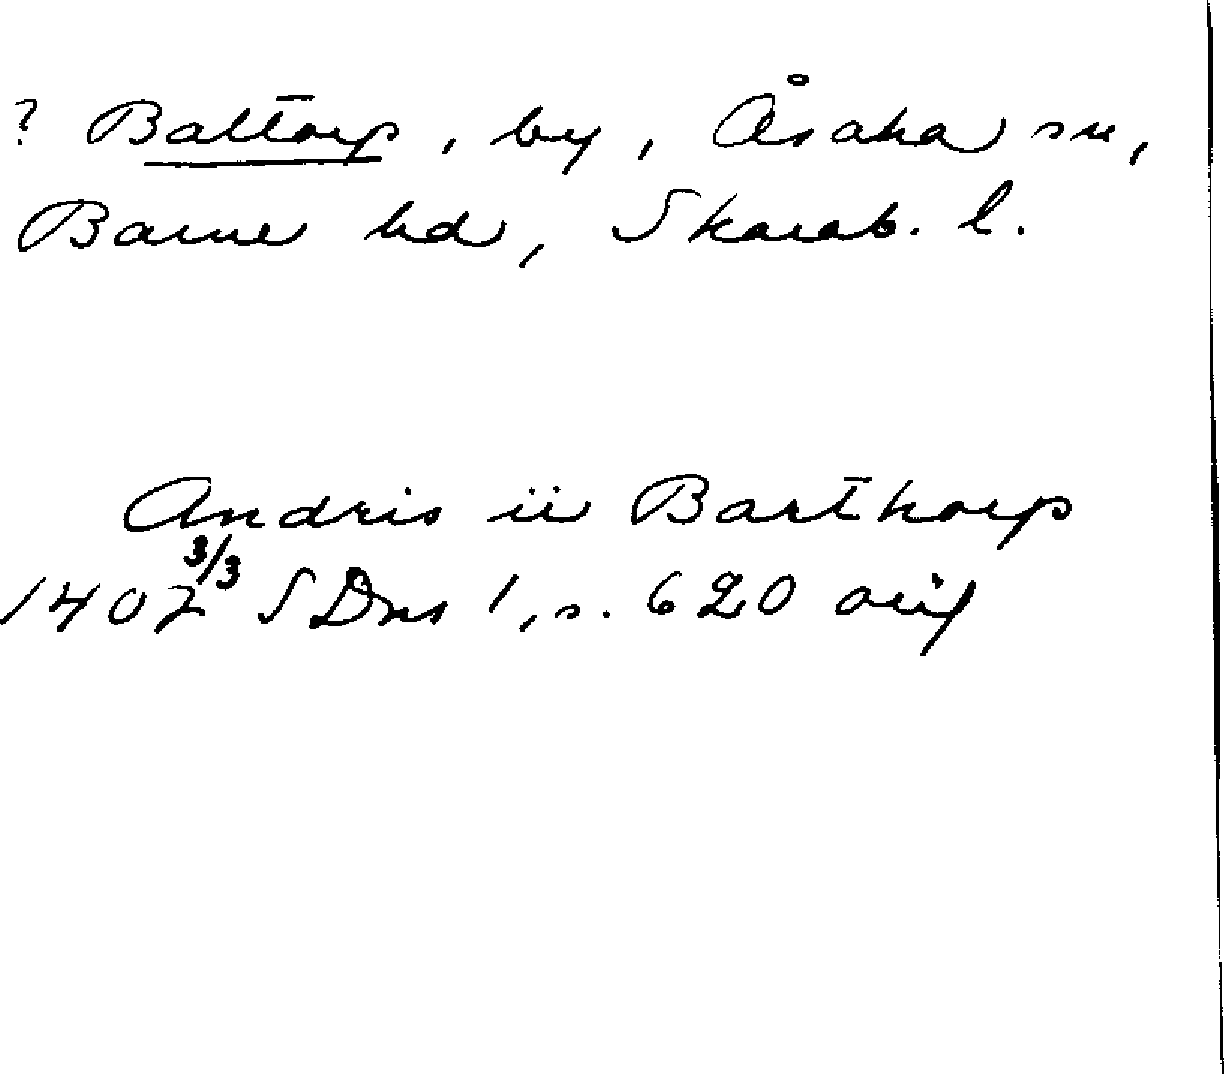 ? Baltorp, by, Åsaka sn,
Barne hd, Skarab. l.
Andris ii Barthorp
1407 3/3 SDns 1, s. 620 orig